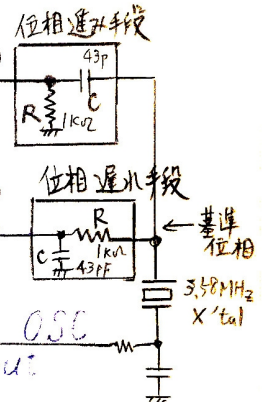 位相進み手段
43p
C
R
1KΩ
位相遅れ手段
R
1KΩ
C
43PF
基準
位相
3.58MHz
X'tal
OSC
ut